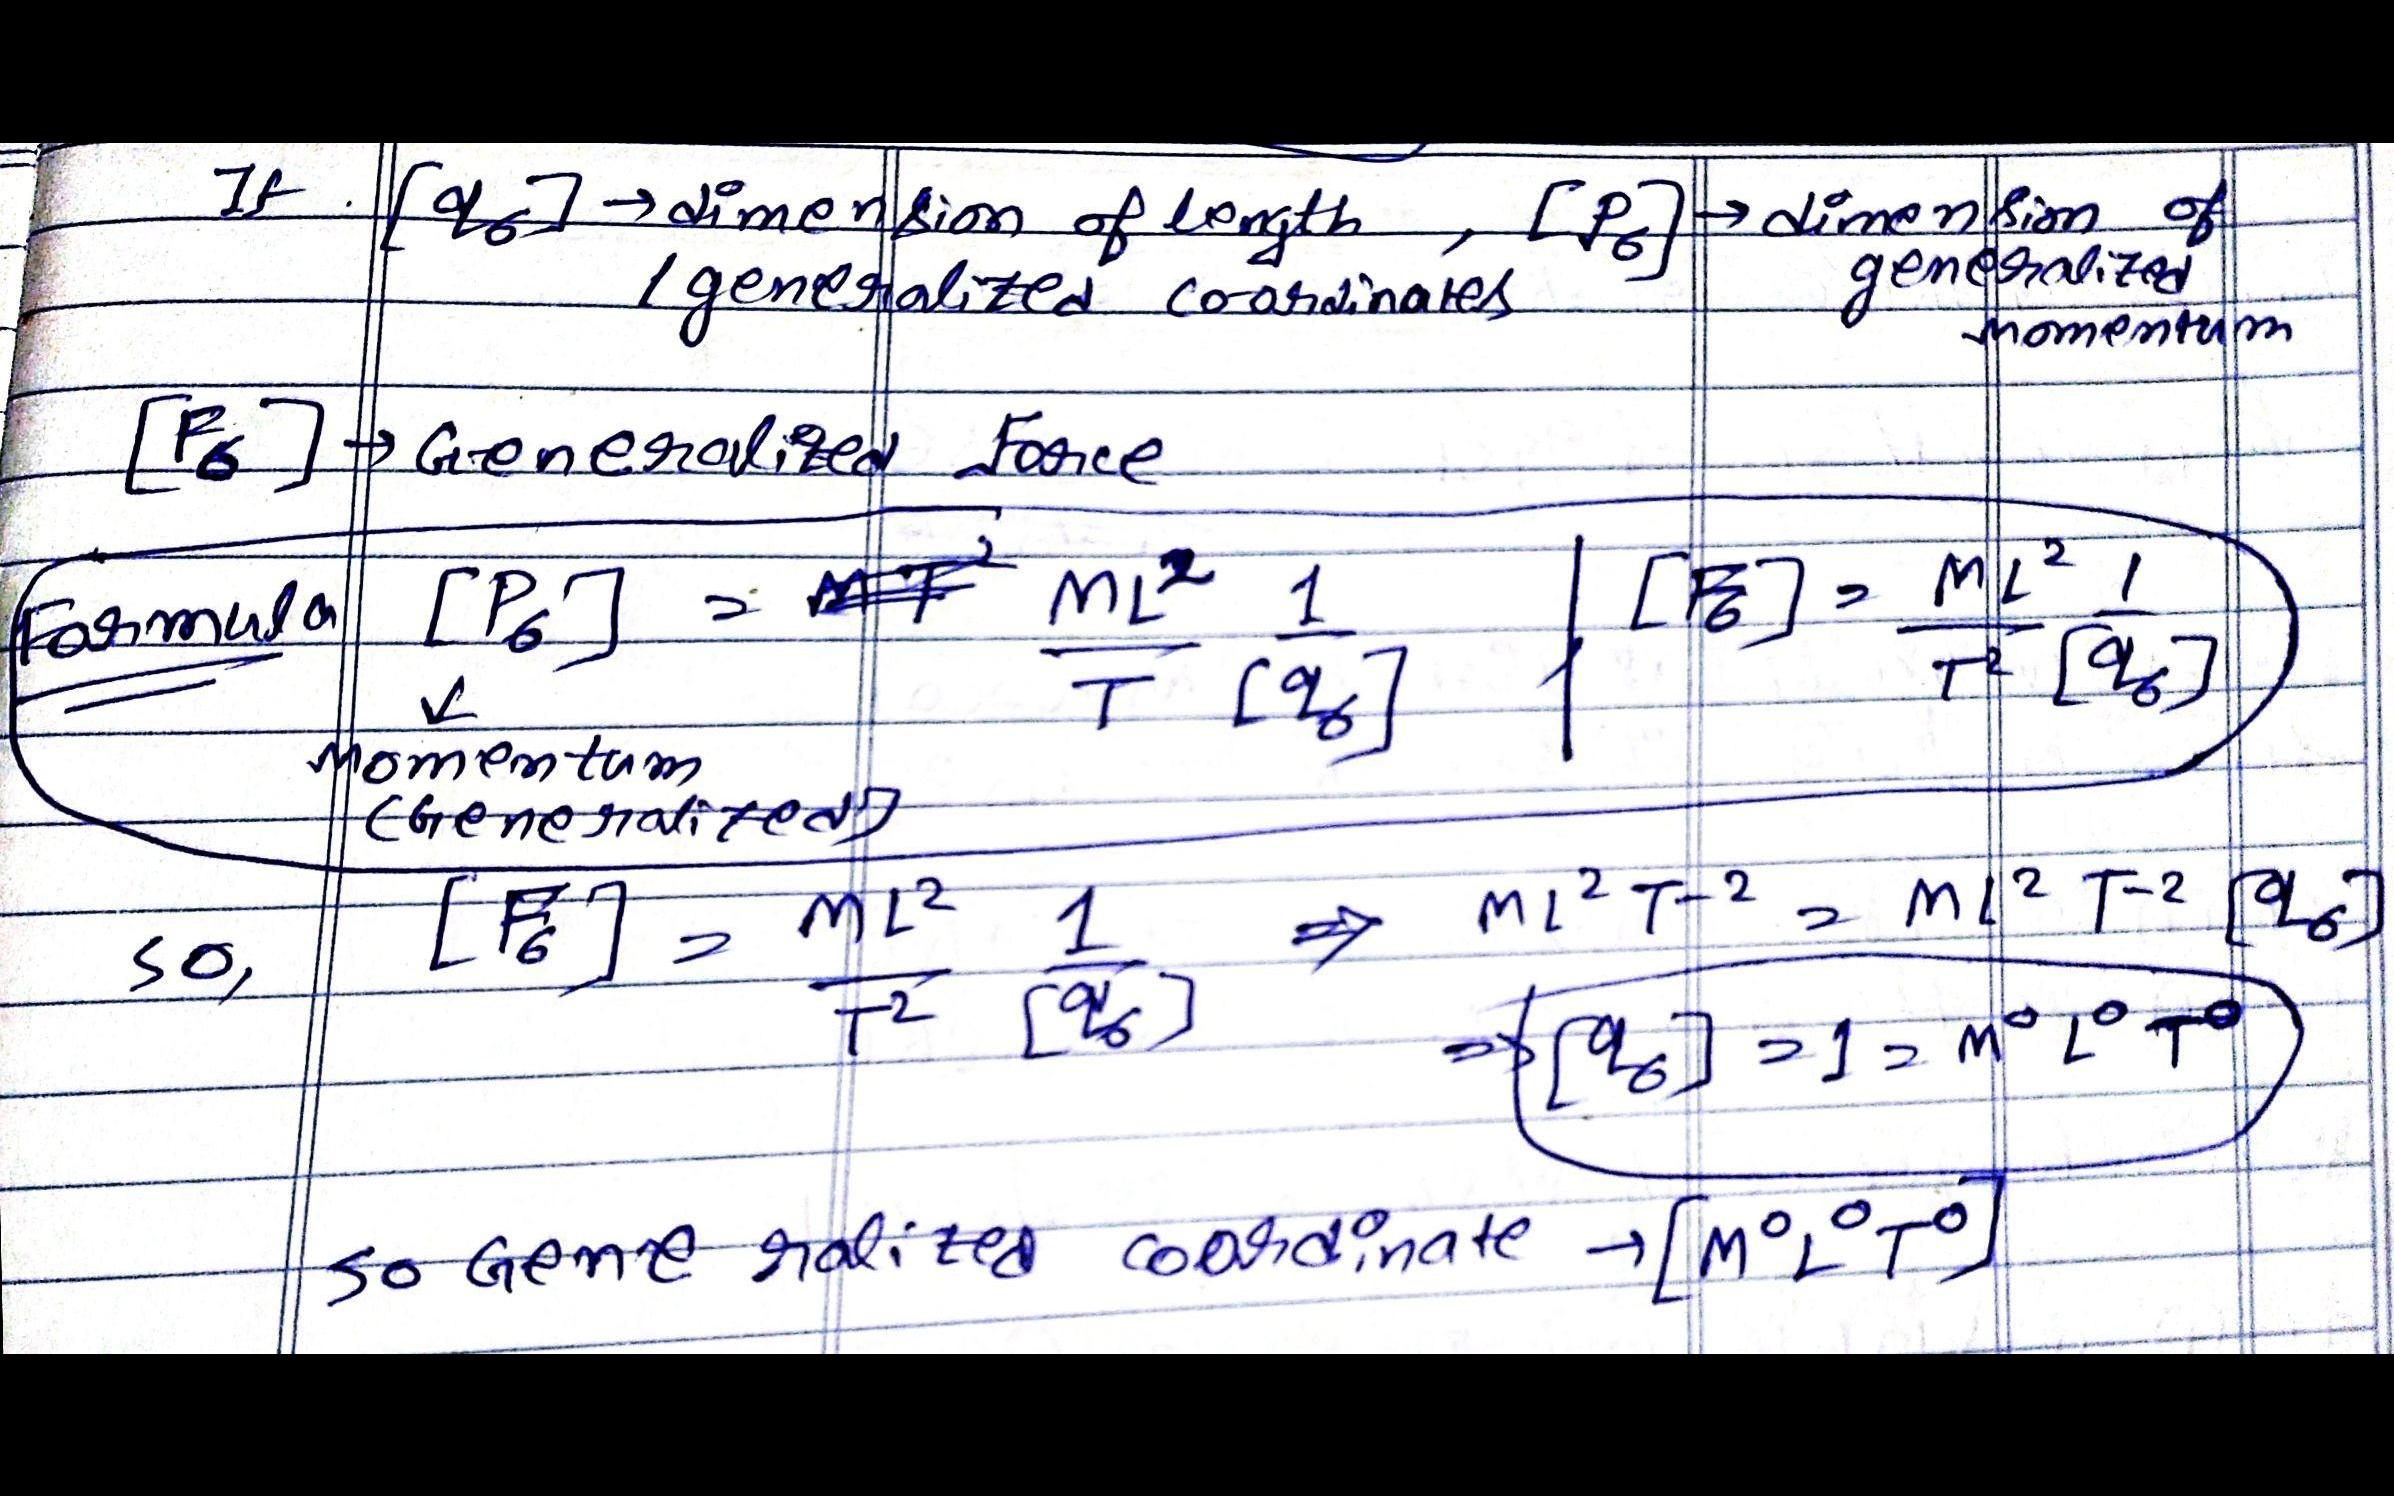 If [q₆] → dimension of length , [P₆] → dimension of
/ generalized co-ordinates generalized
momentum
[F₆] → Generalized Force
Formula [P₆] = ML²/T 1/[q₆] | [F₆] = ML²/T² 1/[q₆]
↓
Momentum
(Generalized)
so, [F₆] = ML²/T² 1/[q₆] ⇒ ML² T-2 = ML² T-2 [q₆]
⇒ [q₆] = 1 = M⁰ L⁰ T⁰
so Generalized coordinate → [M⁰L⁰T⁰]